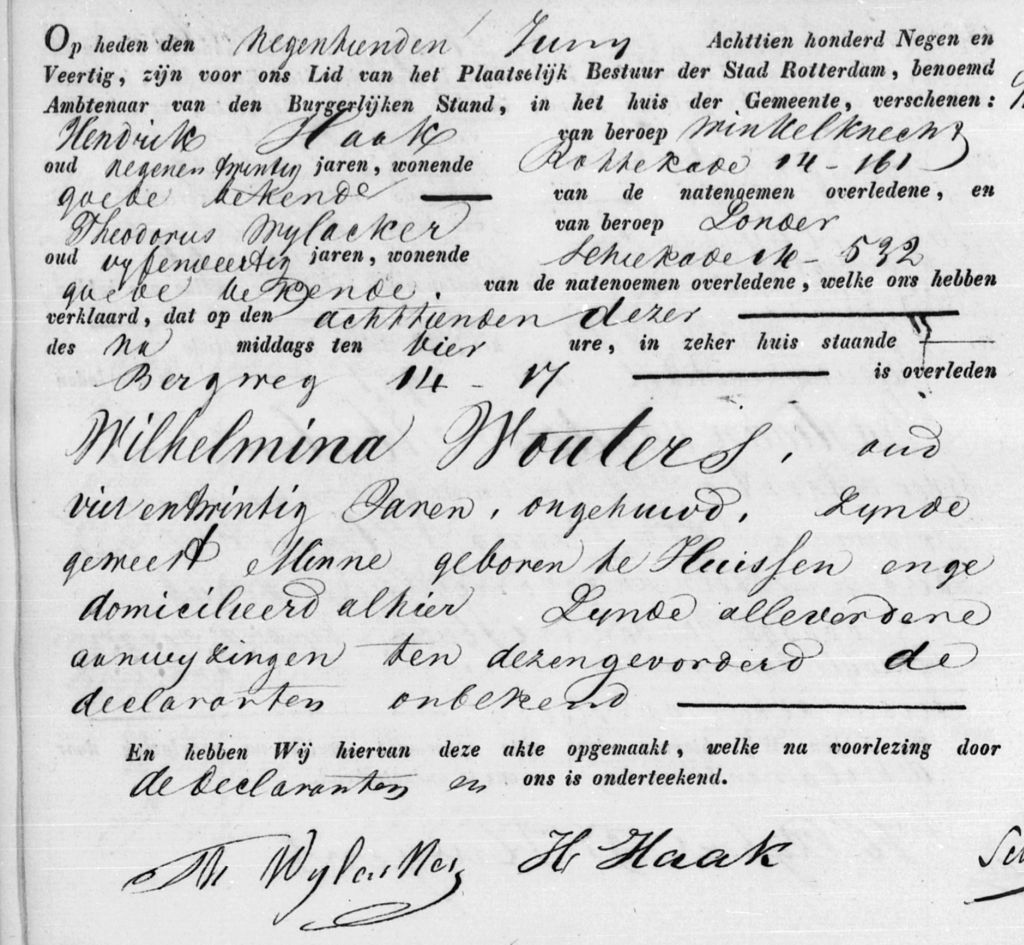 Op heden den negentienden Juny Achttien honderd Negen en
Veertig, zijn voor ons Lid van het Plaatselijk Bestuur der Stad Rotterdam, benoemd
Ambtenaar van den Burgerlijken Stand, in het huis der Gemeente, verschenen:
Hendrik Haak van beroep winkelknecht
oud negenentwintig jaren, wonende Rottekade 14-161
goede bekende van de natenoemen overledene, en
Theodorus Wylacker van beroep Londer
oud vyfenveertig jaren, wonende Schiekade 14-532
goede bekende. van de natenoemen overledene, welke ons hebben
verklaard, dat op den achttienden dezer
des na middags ten vier ure, in zeker huis staande
Bergweg 14-17 is overleden
Wilhelmina Wouters, oud
vierentwintig Jaren, ongehuwd, Zynde
geweest Minne geboren te Huissen en ge
domicilieerd alhier Zynde alle verdere
aanwyzingen ten dezen gevorderd de
declaranten onbekend
En hebben Wij hiervan deze akte opgemaakt, welke na voorlezing door
de declaranten en ons is onderteekend.
Th Wylacker H Haak